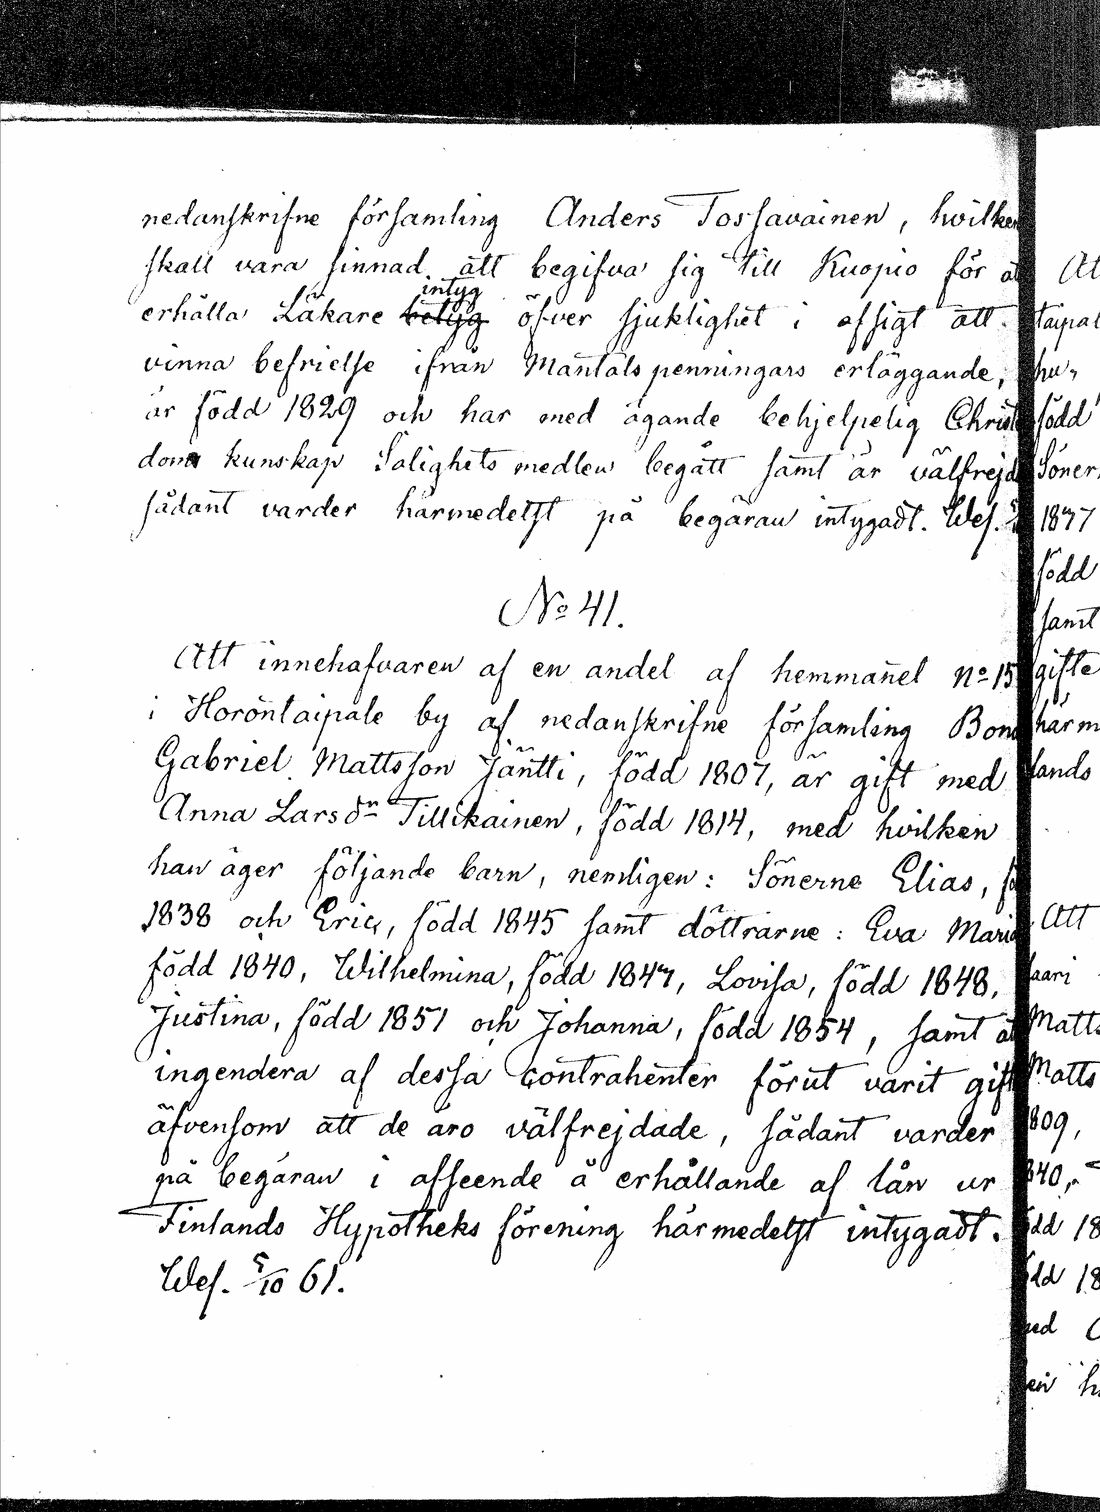 nedanskrifne församling Anders Tossavainen, hvilken
skall vara sinnad att begifva sig till Kuopio för at
intyg
erhålla Läkare betyg öfver sjuklighet i afsigt att
vinna befrielse ifrån Mantalspenningars erläggande,
är född 1829 och har med ägande behjelpelig Christ
doms kunskap Salighets medlen begått samt är välfrejd
sådant varder härmedelst på begäran intygadt. Wes.
No 41.
Att innehafvaren af en andel af hemmanet No 15
i Horontaipale by af nedanskrifne församling Bond
Gabriel Mattsson Jäntti, född 1807, är gift med
Anna Larsdr Tillikainen, född 1814, med hvilken
han äger följande barn, nemligen: Sönerne Elias, fö
1838 och Eric, född 1845 samt döttrarne: Eva Maria
född 1840, Wilhelmina, född 1847, Lovisa, född 1848,
Justina, född 1851 och Johanna, född 1854, samt at
ingendera af dessa contrahenter förut varit gift
äfvensom att de äro välfrejdade, sådant varder
på begäran i afseende å erhållande af lån ur
Finlands Hypotheks förening härmedelst intygadt.
Wes. 5/10 61.
At
taipal
hu,
född
Söner
1877
född
samt
gifte
härm
lands
Att
saari
Matts
Matts
809,
840,
dd 18
dd 18
ned